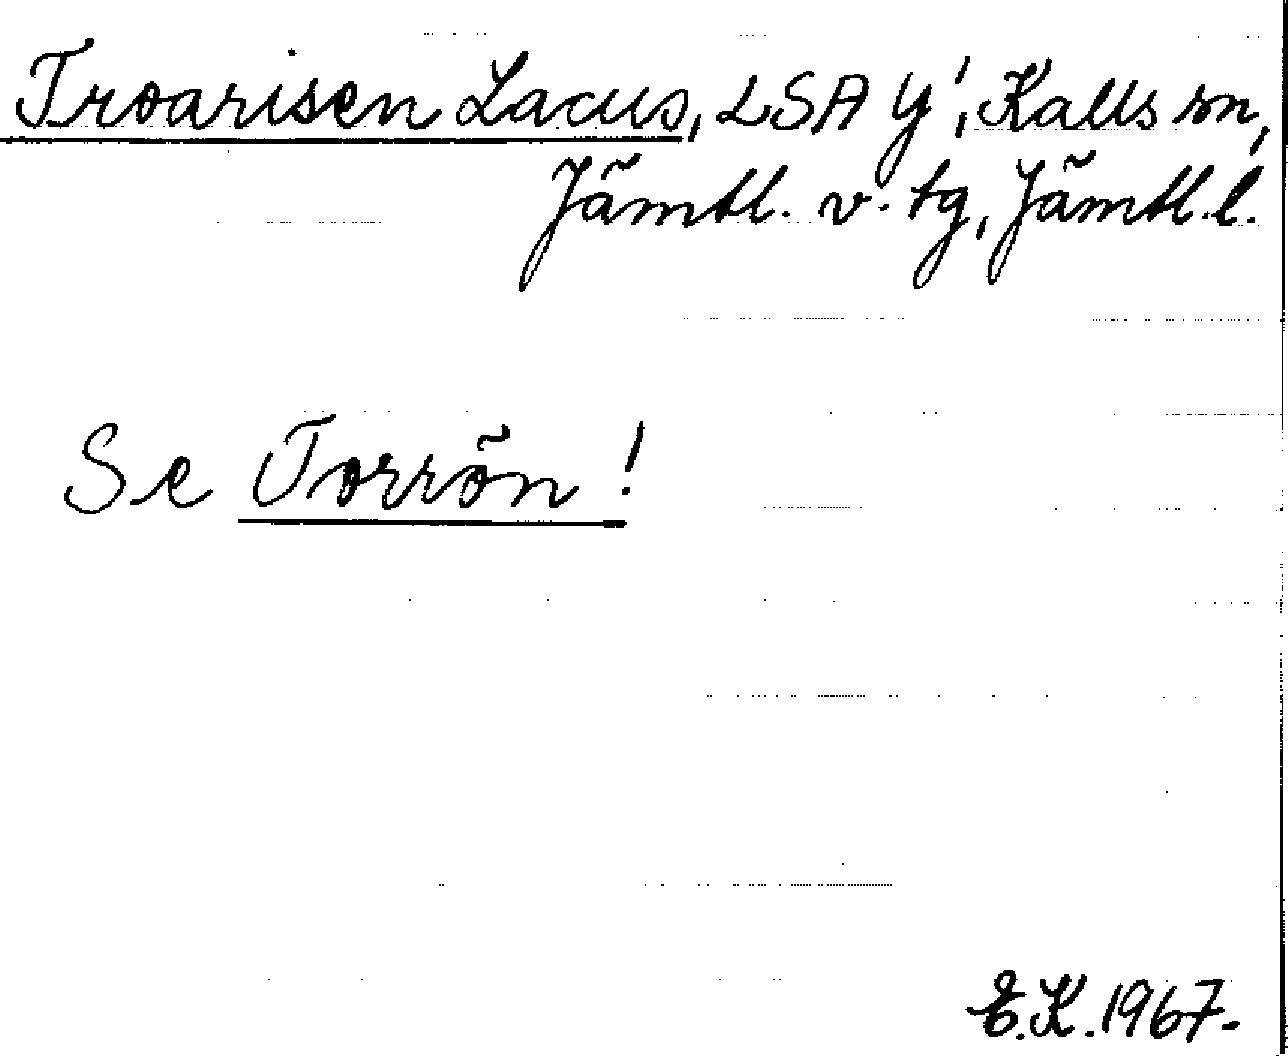 Troarisen Lacus, LSA Y', Kalls sn,
Jämtl. v. tg, Jämtl. l.
Se Torrön!
E.K. 1967.